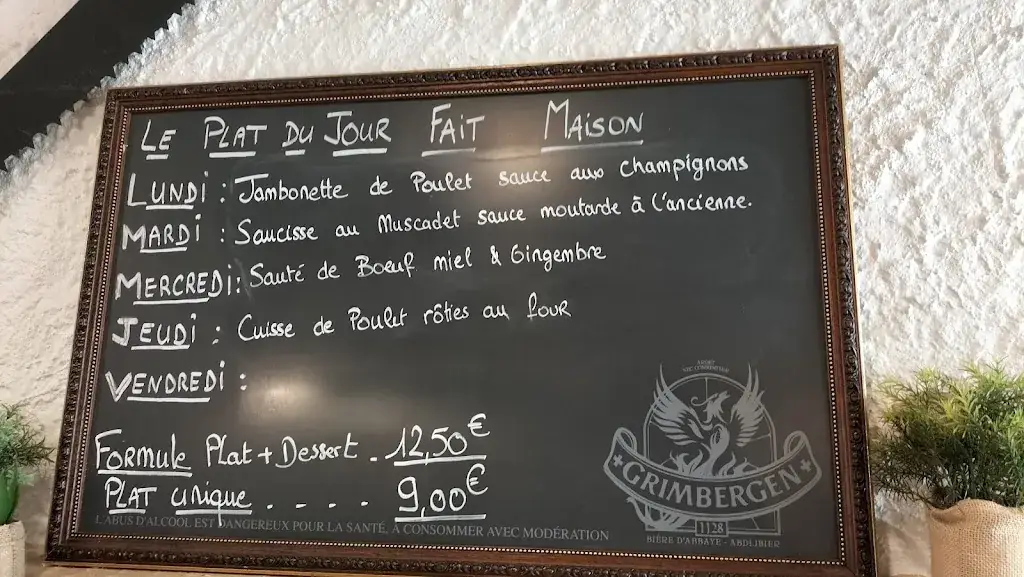 LE PLAT DU JOUR FAIT MAISON
LUNDI : Jambonette de Poulet sauce aux champignons
MARDI : Saucisse au Muscadet sauce moutarde à l'ancienne.
MERCREDI : Sauté de Boeuf miel & Gingembre
JEUDI : Cuisse de Poulet rôties au four
VENDREDI :
FORMULE Plat + Dessert - 12,50€
PLAT unique - - - - 9,00€
L'ABUS D'ALCOOL EST DANGEREUX POUR LA SANTÉ, À CONSOMMER AVEC MODÉRATION
GRIMBERGEN
1128
BIÈRE D'ABBAYE - ABDIJBIER